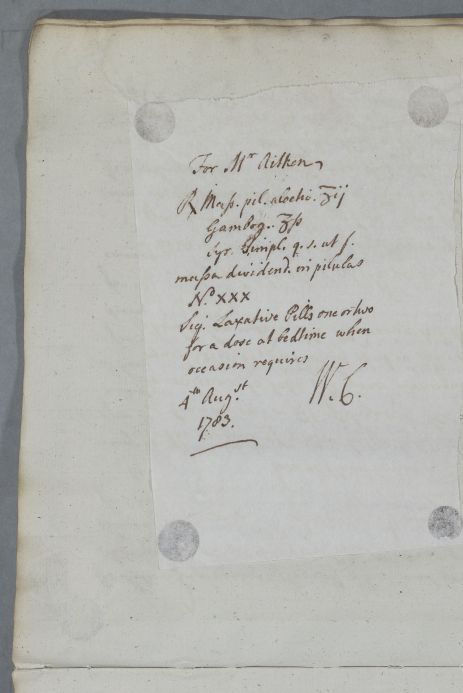 For Mr Aitken
℞ Mass. pil. aloetic. ʒij
Gambog. ʒſs
Syr. Simpl. q. s. ut f.
massa dividend. in pilulas
No. XXX
Sig. Laxative Pills one or two
for a dose at bedtime when
occasion requires
4th Augst.
W. C.
1783.